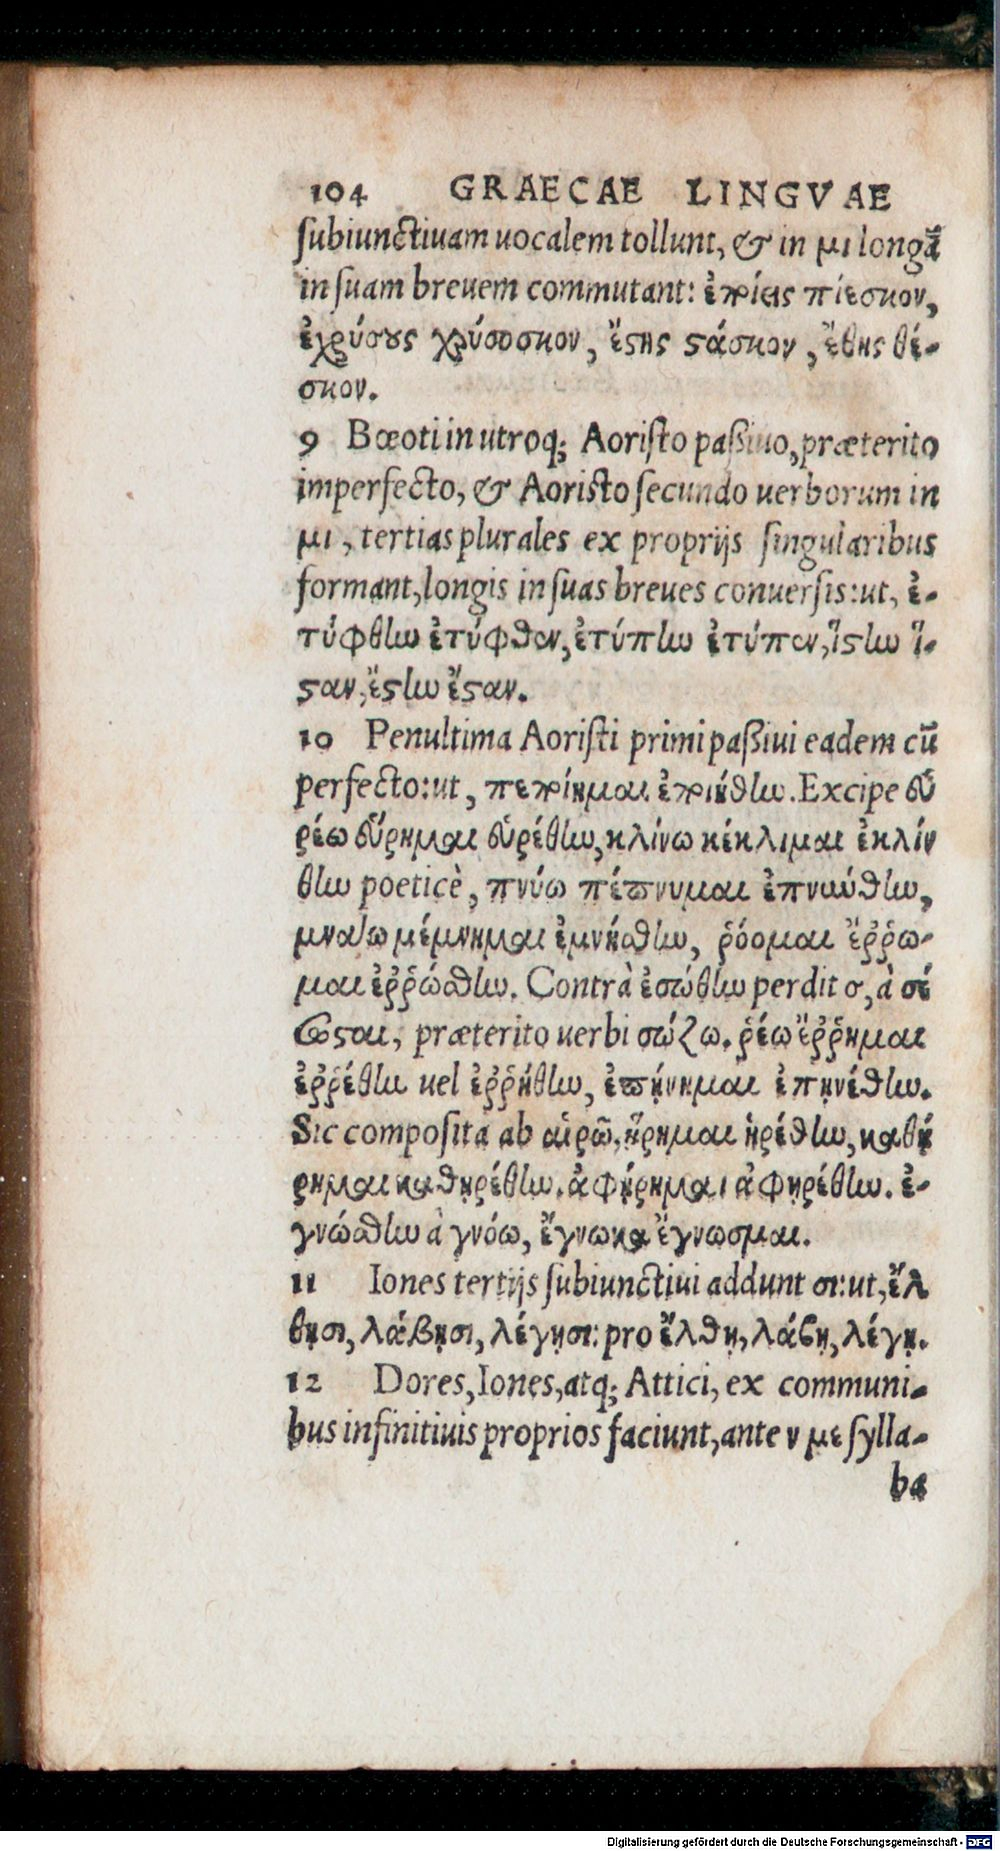 104 GRAECAE LINGVAE
subiunctiuam uocalem tollunt, & in μι longā
in suam breuem commutant: ἐποίεις ποίεσκον,
ἐχρύσους χρύσοσκον, ἔστης στάσκον, ἔθης θέ-
σκον.
9 Bœoti in utroq; Aoristo passiuo, præterito
imperfecto, & Aoristo secundo uerborum in
μι, tertias plurales ex proprijs singularibus
formant, longis in suas breues conuersis: ut, ἐ-
τύφθην ἐτύφθεν, ἐτύπην ἐτύπεν, ἵστην ἵ-
σταν, ἔστην ἔσταν.
10 Penultima Aoristi primi passiui eadem cū
perfecto: ut, πεποίημαι ἐποιήθην. Excipe εὑ
ρέω εὕρημαι εὑρέθην, κλίνω κέκλιμαι ἐκλίν
θην poeticè, πνύω πέπνυμαι ἐπναύθην,
μνάω μέμνημαι ἐμνήσθην, ῥόομαι ἔῤῥω-
μαι ἐῤῥώσθην. Contrà ἐσώθην perdit σ, à σέ
σωσται, præterito uerbi σώζω. ῥέω ἔῤῥημαι
ἐῤῥέθην uel ἐῤῥήθην, ἐπῄνημαι ἐπῃνέθην.
Sic composita ab αἱρῶ, ᾕρημαι ᾑρέθην, καθῄ
ρημαι καθῃρέθην. ἀφῄρημαι ἀφῃρέθην. ἐ-
γνώσθην à γνόω, ἔγνωκα ἔγνωσμαι.
11 Iones tertijs subiunctiui addunt σι: ut, ἔλ
θῃσι, λάβῃσι, λέγῃσι: pro ἔλθῃ, λάβῃ, λέγῃ.
12 Dores, Iones, atq; Attici, ex communi-
bus infinitiuis proprios faciunt, ante ν με sylla-
ba
Digitalisierung gefördert durch die Deutsche Forschungsgemeinschaft - DFG